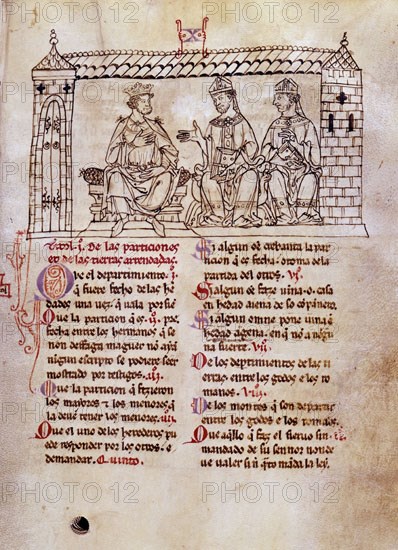 X
Titol. I. De las particiones
e de las tierras arrendadas.
Que el departimiento. I.
q̃ fuere fecho de las he
dades una uez. q̃ uala por sie
Que la particion q̃ es. II.
fecha entre los hermanos q̃ se
non desfaga maguer no aya
ningun escripto se podiere seer
mostrado por testigos. III.
Que la particion q̃ fizieron
los mayores τ los menores q̃
la deue tener los menores. IIII
Que el uno de los herederos pu
ede responder por los otros. e
demandar. Quinto.
Si algun oē crebanta la par
ticion q̃ es fecha. o toma de la
partida del otro. VI.
Si algun oē faze uina. o casa
en hedad aiena de so conpanero.
Si algun omne pone uina en
hedade agena. en q̃ nō a nēgu
na suerte. VII.
De los departimientos de las ti
erras. entre los godos e los ro
manos. VIII.
De los montes q̃ son departidos
entre los godos e los romanos.
Que aq̃llo q̃ faz el sieruo sin
mandado de su sennor non de
ue ualer si nō q̃ to māda la ley.
PHOTO12